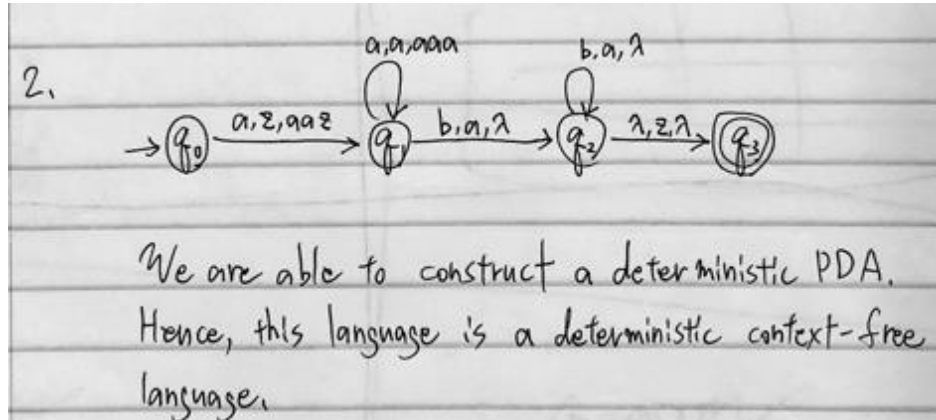 a,a,aaa
b,a,λ
2.
q0
a,z,aaz
q1
b,a,λ
q2
λ,z,λ
q3
We are able to construct a deterministic PDA.
Hence, this language is a deterministic context-free
language.